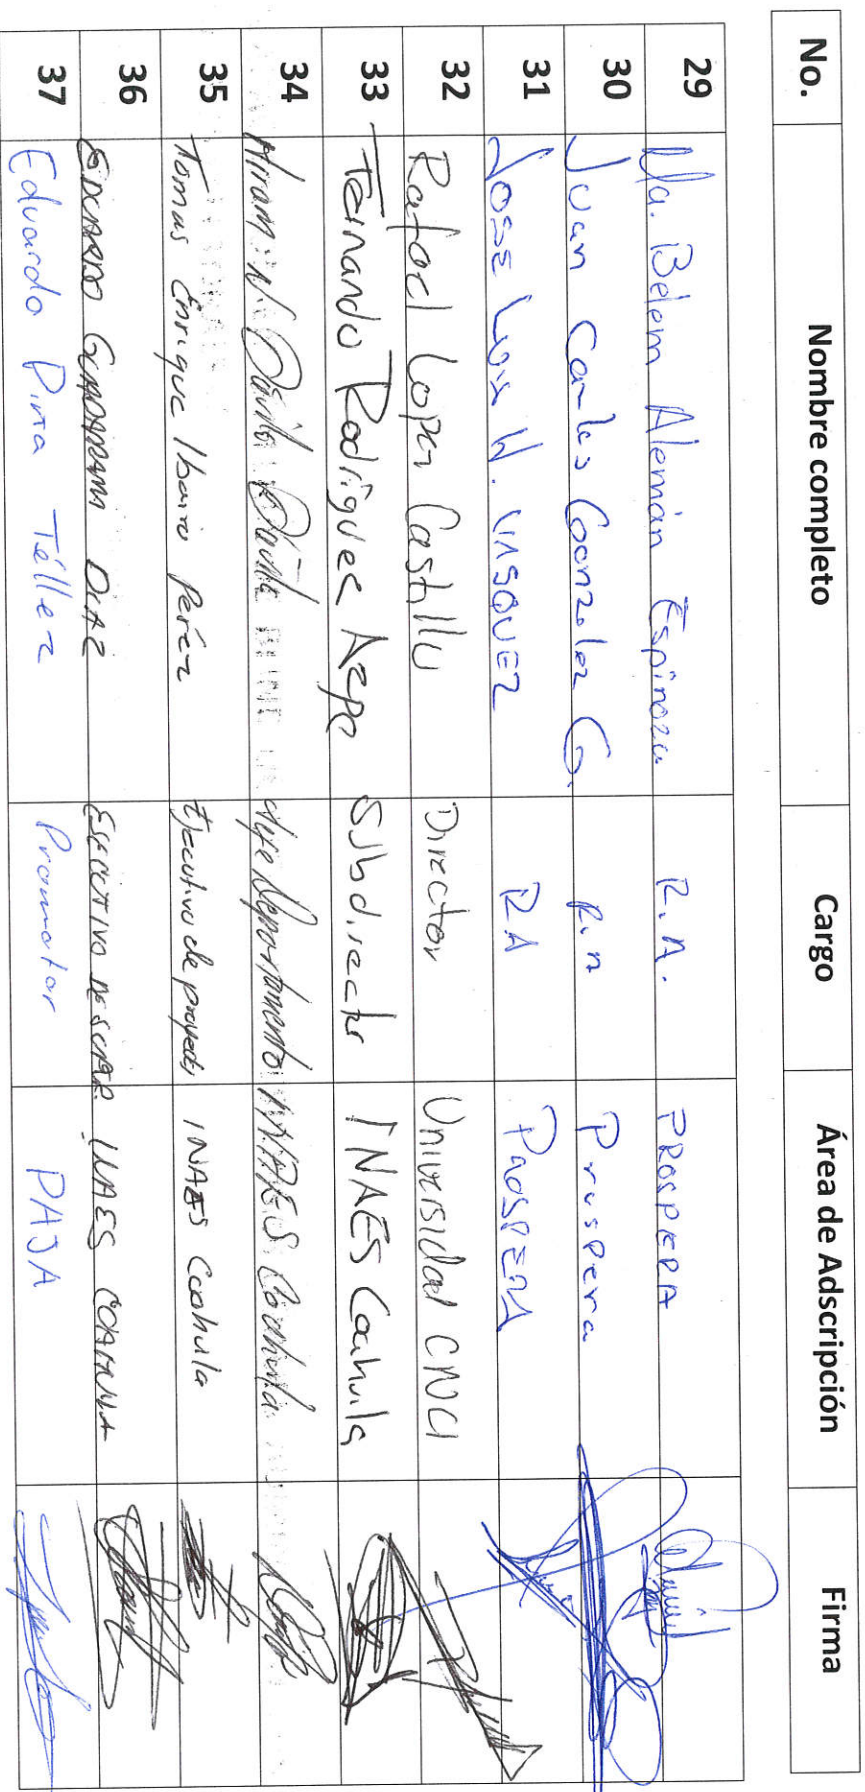 No. Nombre completo Cargo Área de Adscripción Firma
29 Ma. Belem Alemán Espinoza R.A. PROSPERA
30 Juan Carlos Gonzalez G. R.A Prospera
31 JOSE Luis H. VASQUEZ RA PROSPERA
32 Rafael Lopez Castillo Director Universidad CNCI
33 Fernando Rodríguez Subdirector INAES Coahuila
34 Dávila Dávila Jefe Departamento INAES Coahuila
35 Tomas Enrique Ibarra Peréz Ejecutivo de INAES Coahuila
36 EDUARDO GUADARRAMA DIAZ EJECUTIVO INAES COAHUILA
37 Eduardo Piña Téllez Promotor PAJA